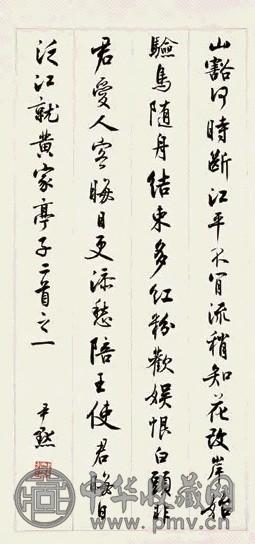 山豁何時斷江平不肯流稍知花改岸始
驗鳥隨舟結束多紅粉歡娛恨白頭非
君愛人客晦日更添愁陪王使君晦日
泛江就黄家亭子二首之一
尹默
中华收藏网
www.pmv.cn